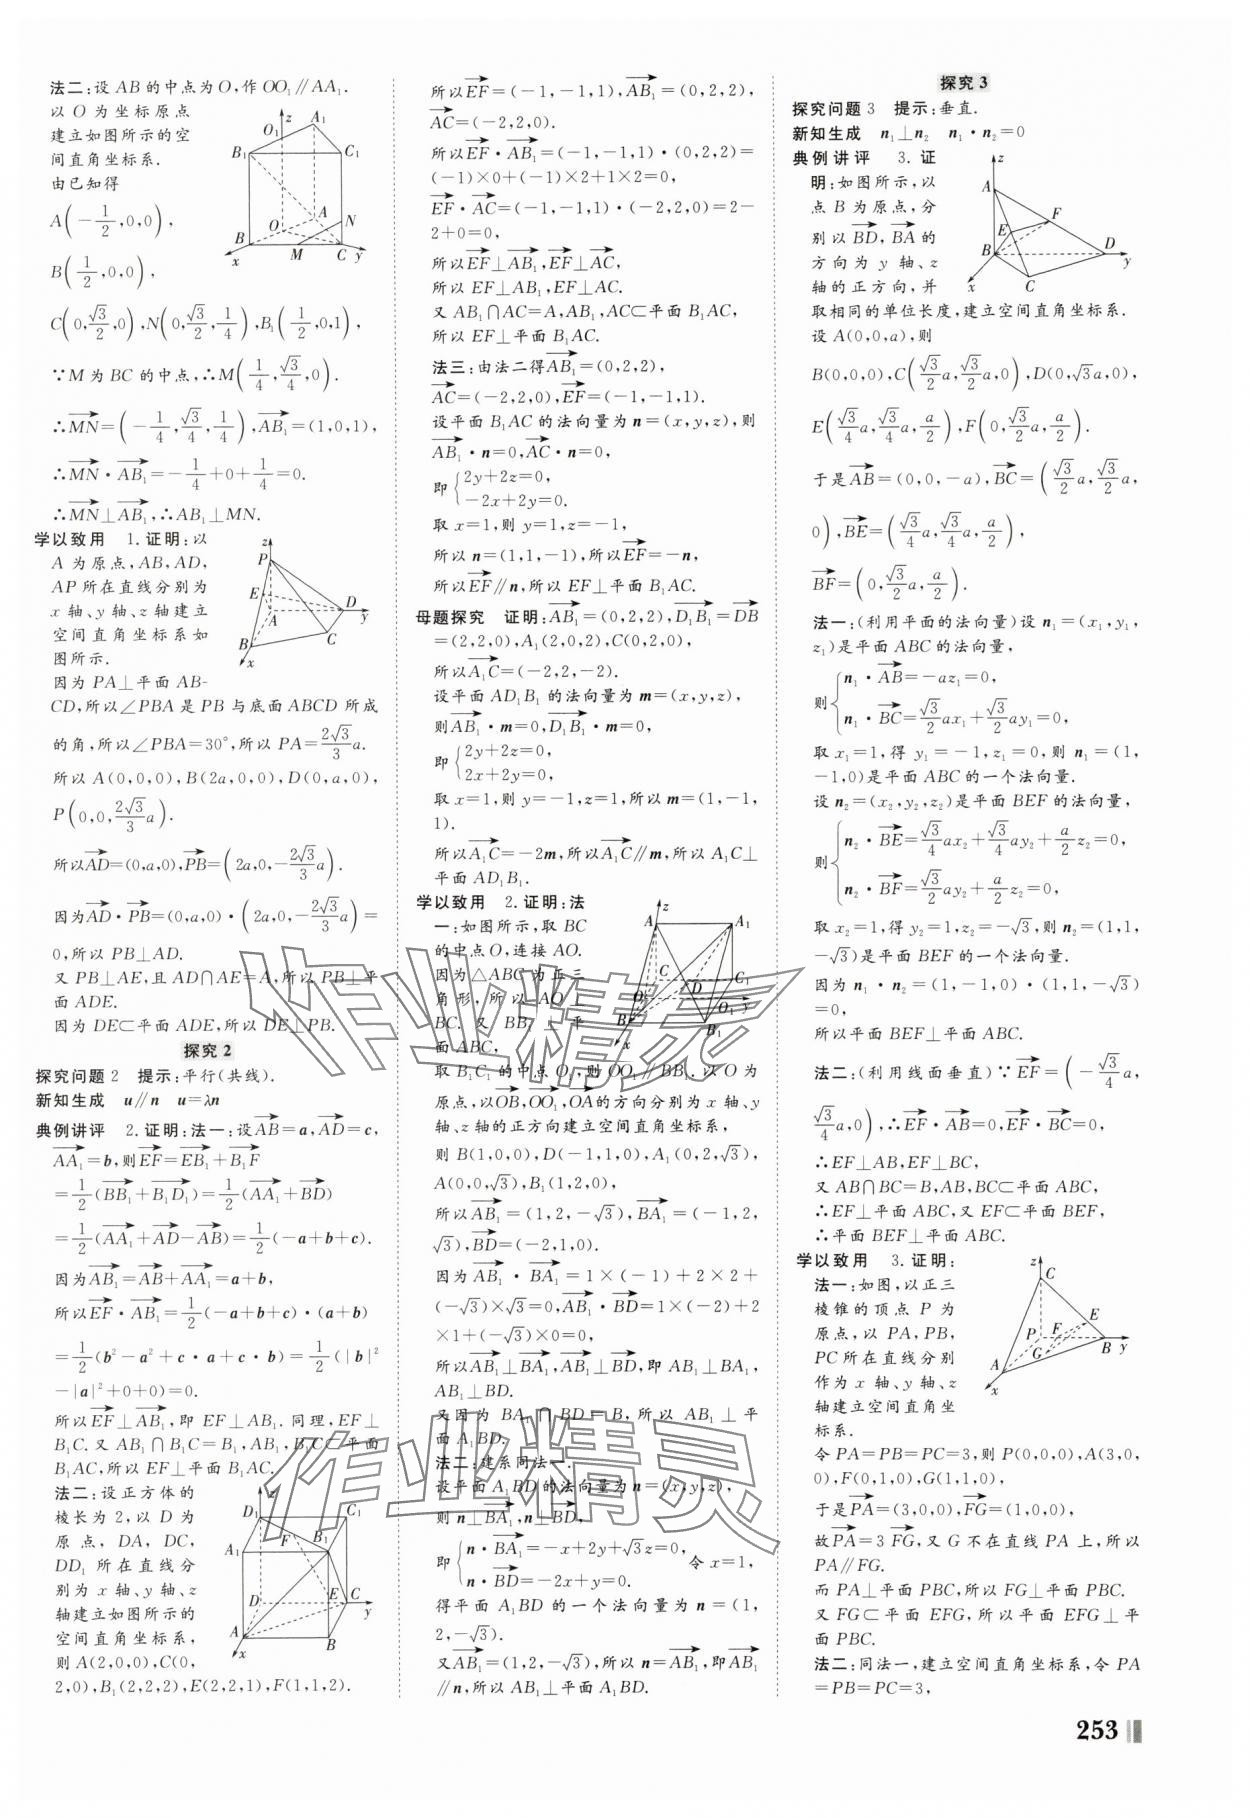 法二:设 AB 的中点为 O,作 OO₁∥AA₁.
以 O 为坐标原点
建立如图所示的空
间直角坐标系.
由已知得
A(-1/2,0,0),
B(1/2,0,0),
C(0,√3/2,0),N(0,√3/2,1/4),B₁(1/2,0,1),
∵M 为 BC 的中点,∴M(1/4,√3/4,0).
∴MN→=(-1/4,√3/4,1/4),AB₁→=(1,0,1),
∴MN→·AB₁→=-1/4+0+1/4=0.
∴MN→⊥AB₁→,∴AB₁⊥MN.
学以致用 1.证明:以
A 为原点,AB,AD,
AP 所在直线分别为
x 轴、y 轴、z 轴建立
空间直角坐标系如
图所示.
因为 PA⊥平面 AB-
CD,所以∠PBA 是 PB 与底面 ABCD 所成
的角,所以∠PBA=30°,所以 PA=2√3/3 a.
所以 A(0,0,0),B(2a,0,0),D(0,a,0),
P(0,0,2√3/3 a).
所以AD→=(0,a,0),PB→=(2a,0,-2√3/3 a).
因为AD→·PB→=(0,a,0)·(2a,0,-2√3/3 a)=
0,所以 PB⊥AD.
又 PB⊥AE,且 AD∩AE=A,所以 PB⊥平
面 ADE.
因为 DE⊂平面 ADE,所以 DE⊥PB.
探究 2
探究问题 2 提示:平行(共线).
新知生成 u∥n u=λn
典例讲评 2.证明:法一:设AB→=a,AD→=c,
AA₁→=b,则EF→=EB₁→+B₁F→
=1/2(BB₁→+B₁D₁→)=1/2(AA₁→+BD→)
=1/2(AA₁→+AD→-AB→)=1/2(-a+b+c).
因为AB₁→=AB→+AA₁→=a+b,
所以EF→·AB₁→=1/2(-a+b+c)·(a+b)
=1/2(b²-a²+c·a+c·b)=1/2(|b|²
-|a|²+0+0)=0.
所以EF→⊥AB₁→,即 EF⊥AB₁.同理,EF⊥
B₁C.又 AB₁∩B₁C=B₁,AB₁,B₁C⊂平面
B₁AC,所以EF⊥平面 B₁AC.
法二:设正方体的
棱长为 2,以 D 为
原点,DA,DC,
DD₁ 所在直线分
别为 x 轴、y 轴、z
轴建立如图所示的
空间直角坐标系,
则 A(2,0,0),C(0,
2,0),B₁(2,2,2),E(2,2,1),F(1,1,2).
所以EF→=(-1,-1,1),AB₁→=(0,2,2),
AC→=(-2,2,0).
所以EF→·AB₁→=(-1,-1,1)·(0,2,2)=
(-1)×0+(-1)×2+1×2=0,
EF→·AC→=(-1,-1,1)·(-2,2,0)=2-
2+0=0,
所以EF→⊥AB₁→,EF→⊥AC→,
所以 EF⊥AB₁,EF⊥AC.
又 AB₁∩AC=A,AB₁,AC⊂平面 B₁AC,
所以 EF⊥平面 B₁AC.
法三:由法二得AB₁→=(0,2,2),
AC→=(-2,2,0),EF→=(-1,-1,1).
设平面 B₁AC 的法向量为 n=(x,y,z),则
AB₁→·n=0,AC→·n=0,
即{2y+2z=0,
-2x+2y=0.
取 x=1,则 y=1,z=-1,
所以 n=(1,1,-1),所以EF→=-n,
所以EF→∥n,所以 EF⊥平面 B₁AC.
母题探究 证明:AB₁→=(0,2,2),D₁B₁→=DB→
=(2,2,0),A₁(2,0,2),C(0,2,0),
所以A₁C→=(-2,2,-2).
设平面 AD₁B₁ 的法向量为 m=(x,y,z),
则AB₁→·m=0,D₁B₁→·m=0,
即{2y+2z=0,
2x+2y=0.
取 x=1,则 y=-1,z=1,所以 m=(1,-1,
1).
所以A₁C→=-2m,所以A₁C→∥m,所以 A₁C⊥
平面 AD₁B₁.
学以致用 2.证明:法
一:如图所示,取 BC
的中点O,连接 AO.
因为△ABC 为正三
角形,所以 AO⊥
BC.又 BB₁⊥平
面 ABC,
取 B₁C₁ 的中点 O₁,则 OO₁∥BB₁.以 O 为
原点,以OB→,OO₁→,OA→的方向分别为 x 轴、y
轴、z轴的正方向建立空间直角坐标系,
则 B(1,0,0),D(-1,1,0),A₁(0,2,√3),
A(0,0,√3),B₁(1,2,0),
所以AB₁→=(1,2,-√3),BA₁→=(-1,2,
√3),BD→=(-2,1,0).
因为AB₁→·BA₁→=1×(-1)+2×2+
(-√3)×√3=0,AB₁→·BD→=1×(-2)+2
×1+(-√3)×0=0,
所以AB₁→⊥BA₁→,AB₁→⊥BD→,即 AB₁⊥BA₁,
AB₁⊥BD.
又因为 BA₁∩BD=B,所以 AB₁⊥平
面 A₁BD.
法二:建系同法一.
设平面 A₁BD的法向量为 n=(x,y,z),
则n⊥BA₁→,n⊥BD→,
即{n·BA₁→=-x+2y+√3z=0, 令 x=1,
n·BD→=-2x+y=0.
得平面 A₁BD 的一个法向量为 n=(1,
2,-√3).
又AB₁→=(1,2,-√3),所以 n=AB₁→,即AB₁→
∥n,所以 AB₁⊥平面 A₁BD.
探究 3
探究问题 3 提示:垂直.
新知生成 n₁⊥n₂ n₁·n₂=0
典例讲评 3.证
明:如图所示,以
点 B 为原点,分
别以BD→,BA→的
方向为 y 轴、z
轴的正方向,并
取相同的单位长度,建立空间直角坐标系.
设 A(0,0,a),则
B(0,0,0),C(√3/2 a,√3/2 a,0),D(0,√3a,0),
E(√3/4 a,√3/4 a,a/2),F(0,√3/2 a,a/2).
于是AB→=(0,0,-a),BC→=(√3/2 a,√3/2 a,
0),BE→=(√3/4 a,√3/4 a,a/2),
BF→=(0,√3/2 a,a/2).
法一:(利用平面的法向量)设 n₁=(x₁,y₁,
z₁)是平面 ABC 的法向量,
则{n₁·AB→=-az₁=0,
n₁·BC→=√3/2 ax₁+√3/2 ay₁=0,
取 x₁=1,得 y₁=-1,z₁=0,则 n₁=(1,
-1,0)是平面 ABC 的一个法向量.
设 n₂=(x₂,y₂,z₂)是平面 BEF 的法向量,
则{n₂·BE→=√3/4 ax₂+√3/4 ay₂+a/2 z₂=0,
n₂·BF→=√3/2 ay₂+a/2 z₂=0,
取 x₂=1,得 y₂=1,z₂=-√3,则 n₂=(1,1,
-√3)是平面 BEF 的一个法向量.
因为 n₁·n₂=(1,-1,0)·(1,1,-√3)
=0,
所以平面 BEF⊥平面 ABC.
法二:(利用线面垂直)∵EF→=(-√3/4 a,
√3/4 a,0),∴EF→·AB→=0,EF→·BC→=0,
∴EF⊥AB,EF⊥BC,
又 AB∩BC=B,AB,BC⊂平面 ABC,
∴EF⊥平面 ABC,又 EF⊂平面 BEF,
∴平面 BEF⊥平面 ABC.
学以致用 3.证明:
法一:如图,以正三
棱锥的顶点 P 为
原点,以 PA,PB,
PC所在直线分别
作为 x 轴、y轴、z
轴建立空间直角坐
标系.
令 PA=PB=PC=3,则 P(0,0,0),A(3,0,
0),F(0,1,0),G(1,1,0),
于是PA→=(3,0,0),FG→=(1,0,0),
故PA→=3 FG→,又 G 不在直线 PA 上,所以
PA∥FG.
而 PA⊥平面 PBC,所以 FG⊥平面 PBC.
又 FG⊂平面 EFG,所以平面 EFG⊥平
面 PBC.
法二:同法一,建立空间直角坐标系,令 PA
=PB=PC=3,
253
作业精灵
作业精灵